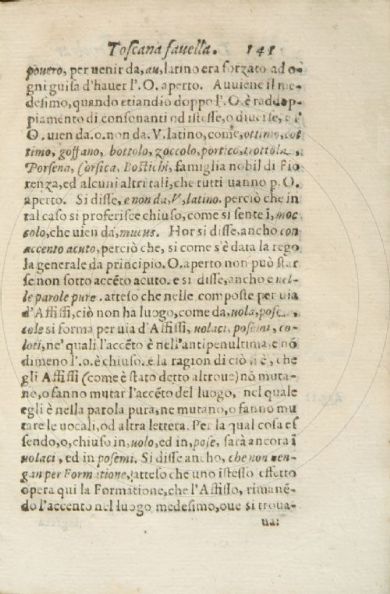 Toscana fauella. 141
pouero, per venir da, au, latino era forzato ad o-
gni guisa d'hauer l'.O. aperto. Auuiene il me-
desimo, quando etiandio doppo l'.O. è raddop-
piamento di consonanti od istesse, o diuerse, e l'.
O. uien da. o. non da. V. latino, come, ottimo, cot
timo, goffano, bottolo, zoccolo, portico, trottola,
Porsena, Corsica, Bostichi, famiglia nobil di Fio
renza, ed alcuni altri tali, che tutti uanno p. O.
aperto. Si disse, e non da, V, latino. perciò che in
tal caso si proferisce chiuso, come si sente ĩ, moc
colo, che uien da, mucus. Hor si disse, ancho con
accento acuto, perciò che, si come s'è data la rego
la generale da principio. O. aperto non può star
se non sotto accēto acuto. e si disse, ancho e nel-
le parole pure. atteso che nelle composte per uia
d'Affissi, ciò non ha luogo, come da, uola, pose,
cole si forma per uia d'Affissi, uolaci, posemi, co-
loti, ne' quali l'accēto è nell'antipenultima, e nō
dimeno l'.o. è chiuso. e la ragion di ciò è, che
gli Affissi (come è stato detto altroue) nō muta-
no, o fanno mutar l'accēto del luogo, nel quale
egli è nella parola pura, ne mutano, o fanno mu
tare le uocali, od altra lettera. Per la qual cosa es
sendo, o, chiuso in, uolo, ed in, pose, sarà ancora ĩ
uolaci, ed in posemi. Si disse ancho, che non uen-
gan per Formatione, atteso che uno istesso effetto
opera qui la Formatione, che l'Affisso, rimanē-
do l'accento nel luogo medesimo, oue si troua-
ua: